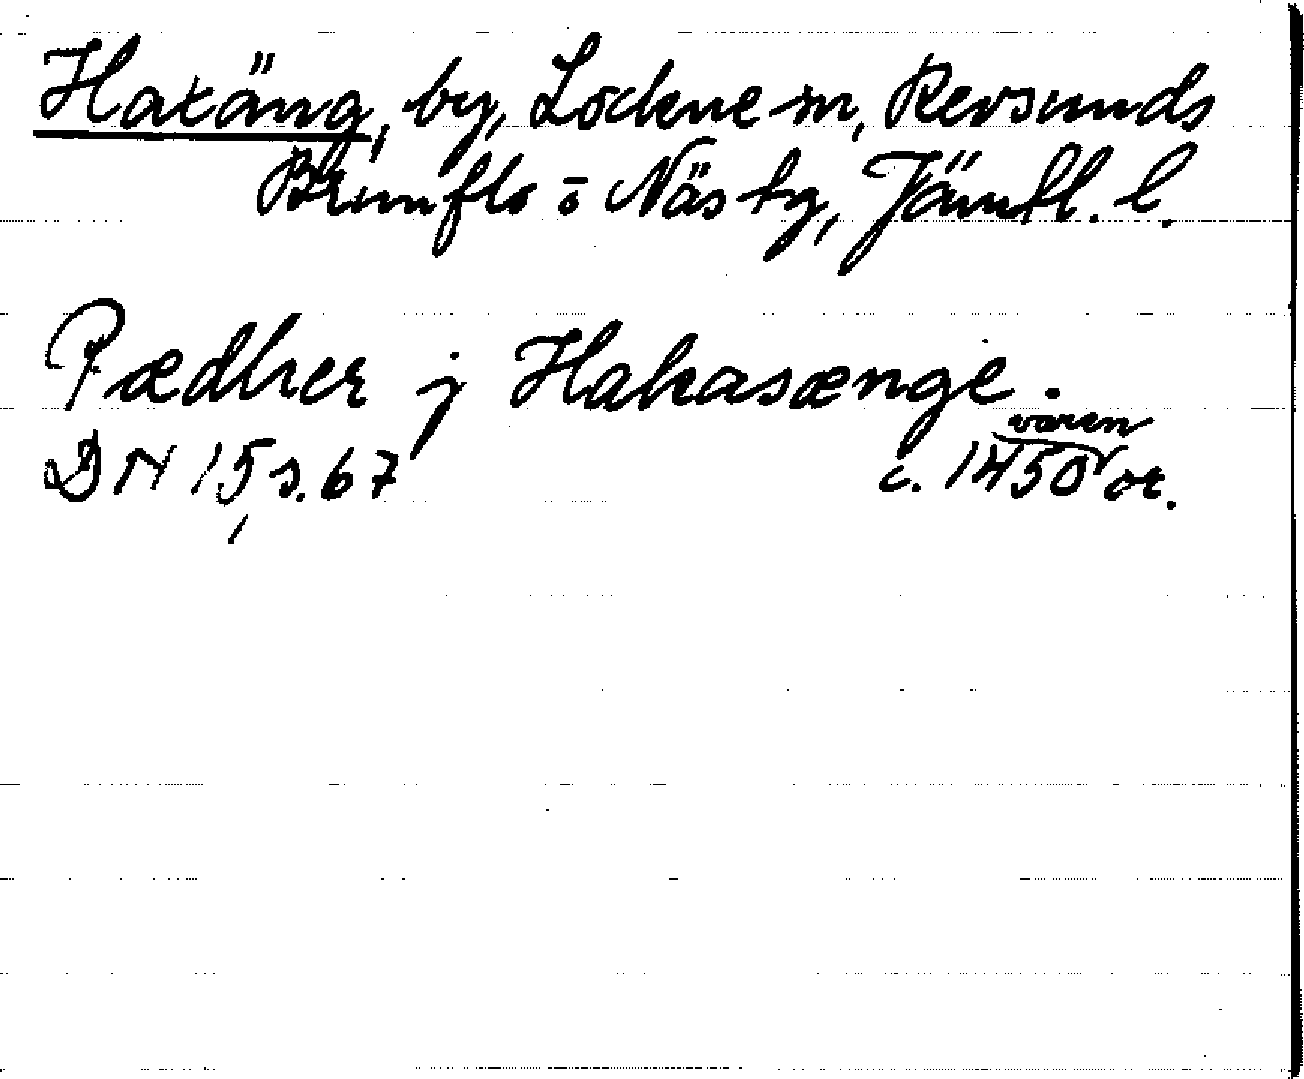 Hakäng, by, Lockne sn, Revsunds
Brunflo o Näs tg, Jämtl. l.
Pædher j Hakasænge.
DN 15, s. 67 c. 1450 or.